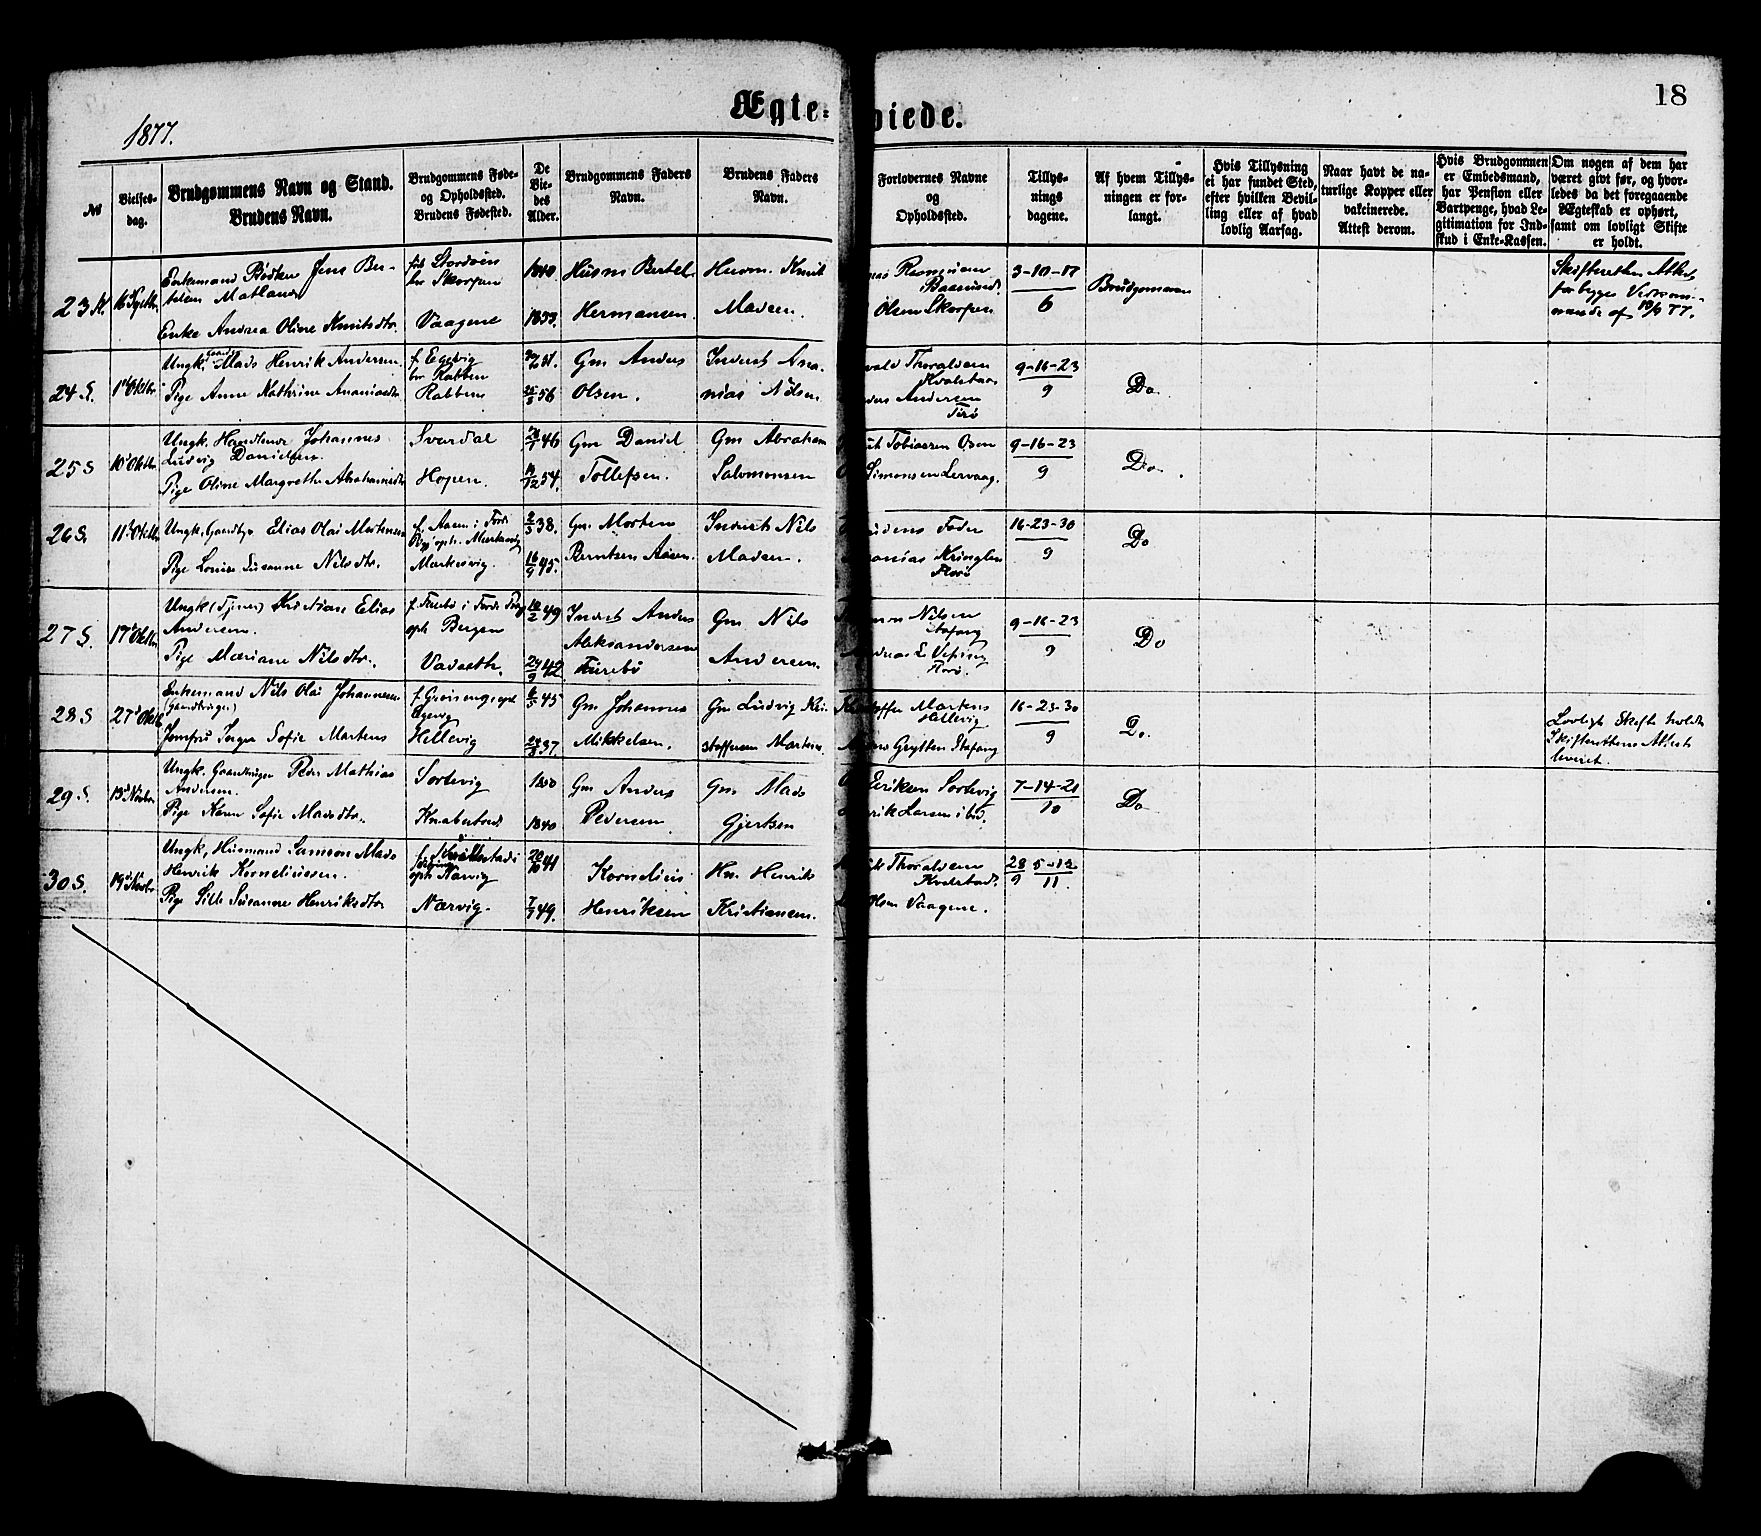 Ægte=
viede.
18
1877.
№
Vielses=
dag.
Brudgommens Navn og Stand.
Brudens Navn.
Brudgommens Føde=
og Opholdssted.
Brudens Fødested.
De
Vie=
des
Alder.
Brudgommens Faders
Navn.
Brudens Faders
Navn.
Forlovernes Navne
og
Opholdssted.
Tillys=
nings
dagene.
Af hvem Tillys=
ningen er for=
langt.
Hvis Tillysning
ei har fundet Sted,
efter hvilken Bevil=
ling eller af hvad
lovlig Aarsag.
Naar havt de na=
turlige Kopper eller
vakcinerede.
Attest derom.
Hvis Brudgommen
er Embedsmand,
har Pension eller
Vartpenge, hvad Le=
gitimation for Ind=
skud i Enke=Kassen.
Om nogen af dem har
været givt før, og hvor=
ledes da det foregaaende
Ægteskab er ophørt,
samt om lovligt Skifte
er holdt.
23
Enkemand Bødker Jens Ber-
telsen Matland
Enke Andrea Oline Knutsdtr.
Stordøen
Skorpen
Vaagene
1840
1853.
Husm Bertel
Hermansen.
Husm. Knut
Madsen.
Rasmussen
Olsen Skorpen
3-10-17
6
Brudgommen
Skifterettens Attest
77.
24 S.
1 Oktbr
Ungk. Gaardb. Mads Henrik Andersen
Pige Anne Kathrine Ananiasdtr
f. Egevig
bor Rabben
Rabben
51.
56
Gm Anders
Olsen.
Inderst Ana-
nias Nilsen
Thoraldsen
Kvalstad
Andersen
9-16-23
9
Do
25 S
10 Oktbr
Ungk. Handlende Johannes
Ludvig Danielsen.
Pige Oline Margrethe Abrahamsdtr
Svardal
Hopen.
46
54.
Gm Daniel
Tollefsen.
Gm Abraham
Salomonsen
Tobiassen Osen
Simonsen Lervaag.
9-16-23
9
Do
26 S.
11 Oktbr
Ungk, Gaardbr Elias Olai Mortensen
Pige Lovise Susanne Nilsdtr.
f. Aasen i Førde
Markevig.
38.
45.
Gm. Morten
Berntsen Aasen.
Inderst Nils
Madsen.
Brudens Fader
Ananias Kringlen
Florø
16-23-30
9
Do
27 S.
17 Oktbr
Ungk (Tjener) Kristian Elias
Andersen.
Pige Mariane Nilsdtr.
oph Bergen
Vadseth.
49
42
Inderst Anders
Aleksandersen
Furebø
Gm Nils
Andersen.
Nilsen
Stafang
Florø.
9-16-23
9
Do
28 S
27 Oktbr
Enkemand Nils Olai Johannesen
(Gaardbruger)
Jomfru Inger Sofie Martens
Hellevig
45
37.
Gm Johannes
Mikkelsen.
Gm Ludvig Kri-
stoffersen Martens.
Kristoffer Martens
Hellevig
Grytten Stafang
16-23-30
9
Do.
Lovligt Skifte holdt
Skifterettens Attest
leveret.
29 S.
13 Novbr
Ungk. Gaardbruger Peder Mathias
Andersen.
Pige Karen Sofie Madsdtr.
Sørlevig
1850
1840
Gm Anders
Pedersen
Gm Mads
Gjertsen
Eriksen Sørlevig
Larsen ibd.
7-14-21
10
Do
30 S.
19 Novbr
Ungk, Husmand Samson Mads
Henrik Korneliussen.
Pige Sille Susanne Henriksdtr
oph Narvig
Narvig.
41
49.
Kornelius
Henriksen
Hm Henrik
Kristiansen.
Thoraldsen
Kvalstad.
Olsen Vaagene.
28 5-12
9 11.